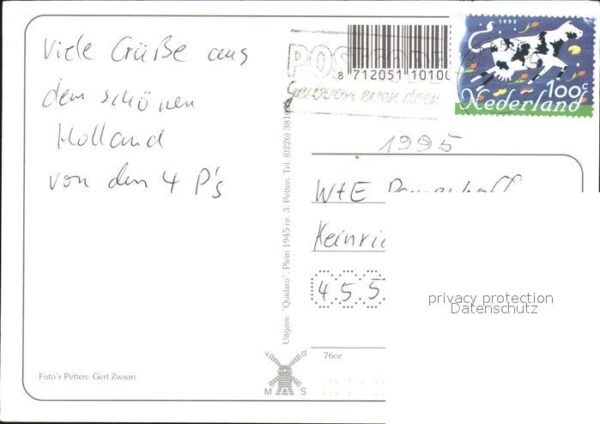 Viele Grüße aus
dem schönen
Holland
von den 4 P's
8 712051 10100
POSTCODE
Gewoon even doen
100c
Nederland
1995
W+E
4.5.5
privacy protection
Datenschutz
Uitgave: "Quidaro", Plein 1945 nr. 3, Petten. Tel. (0226) 381
76ce
M S
Foto's Petten: Gert Zwaan